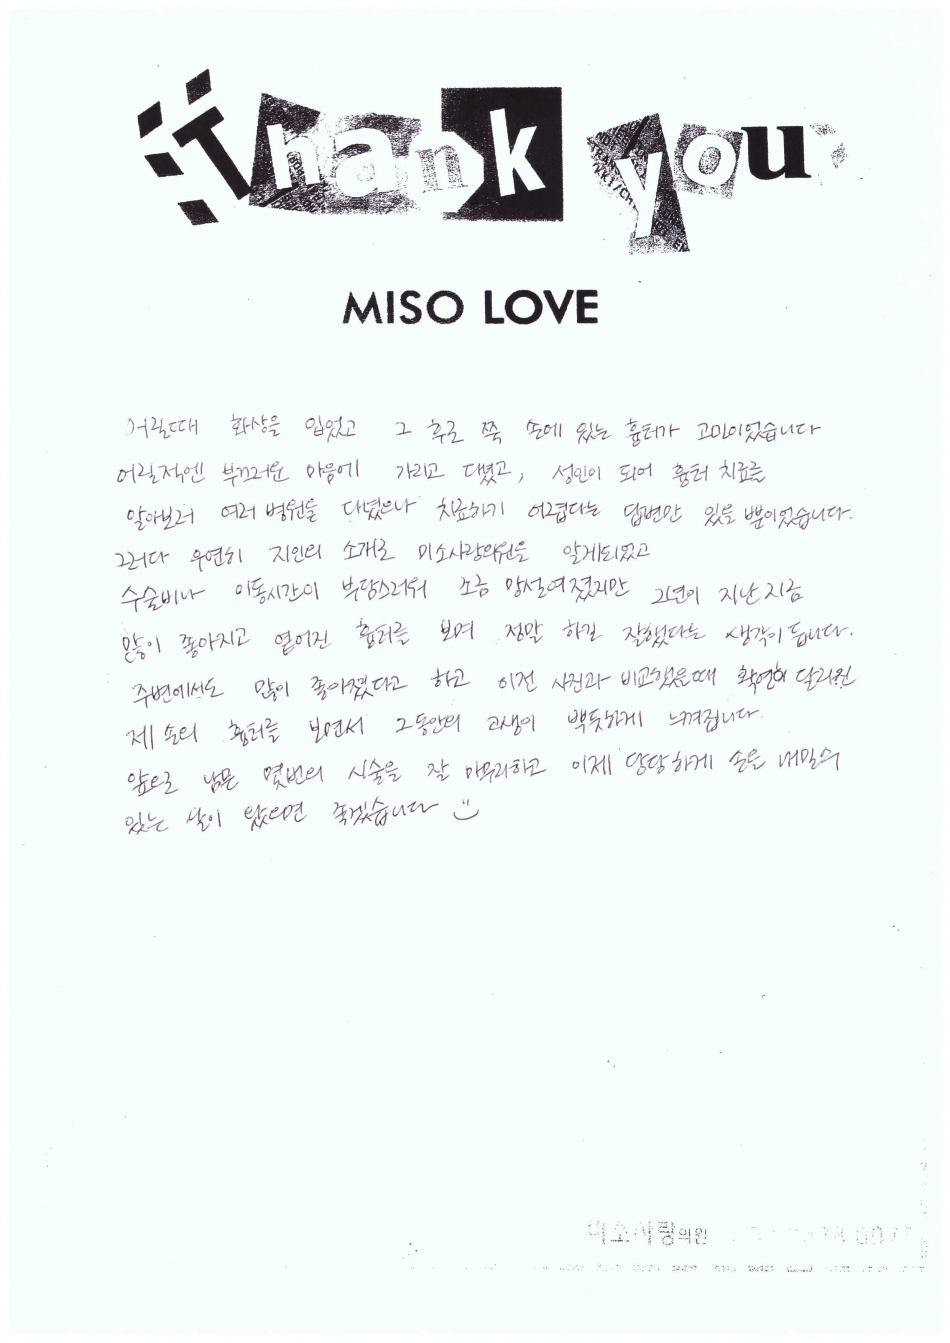 Thank you
MISO LOVE
어릴때 화상을 입었고 그 후로 쭉 손에 있는 흉터가 고민이었습니다
어릴적엔 부끄러운 마음에 가리고 다녔고, 성인이 되어 흉터 치료를
알아보러 여러 병원을 다녔으나 치료하기 어렵다는 답변만 있을 뿐이었습니다.
그러다 우연히 지인의 소개로 미소사랑의원을 알게되었고
수술비나 이동시간이 부담스러워 조금 망설여졌지만 2년이 지난 지금
많이 좋아지고 옅어진 흉터를 보며 정말 하길 잘했다는 생각이 듭니다.
주변에서도 많이 좋아졌다고 하고 이전 사진과 비교했을때 확연히 달라진
제 손의 흉터를 보면서 그동안의 고생이 뿌듯하게 느껴집니다.
앞으로 남은 몇번의 시술을 잘 마무리하고 이제 당당하게 손을 내밀수
있는 날이 왔으면 좋겠습니다
미소사랑의원